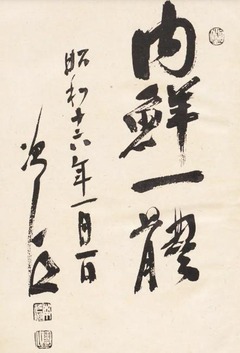 内鮮一體
昭和十六年一月一日